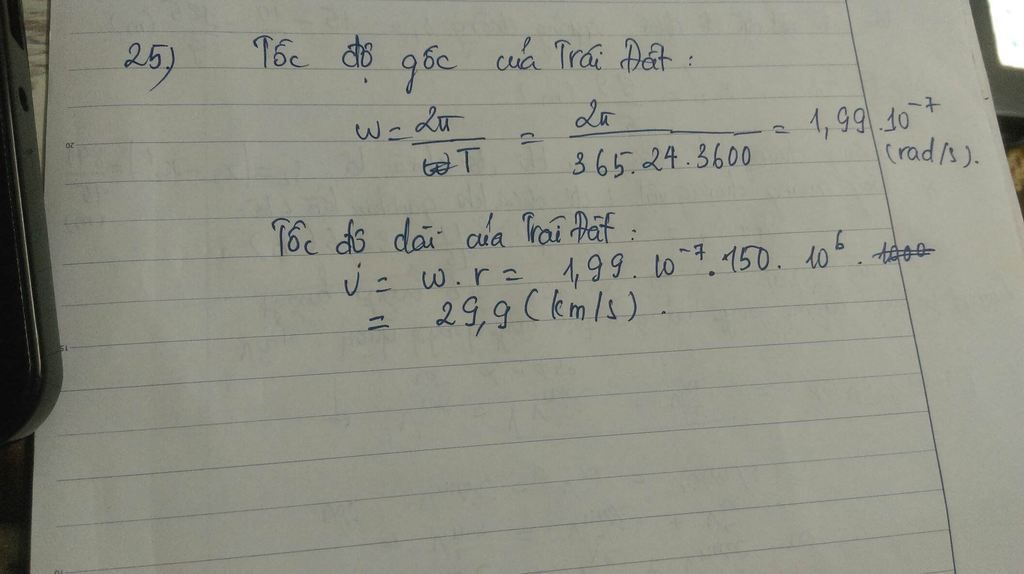 25) Tốc độ góc của Trái Đất:
w = 2π / T = 2π / 365.24.3600 = 1,99.10⁻⁷ (rad/s).
Tốc độ dài của Trái Đất:
v = w.r = 1,99.10⁻⁷.150.10⁶.
= 29,9 (km/s).